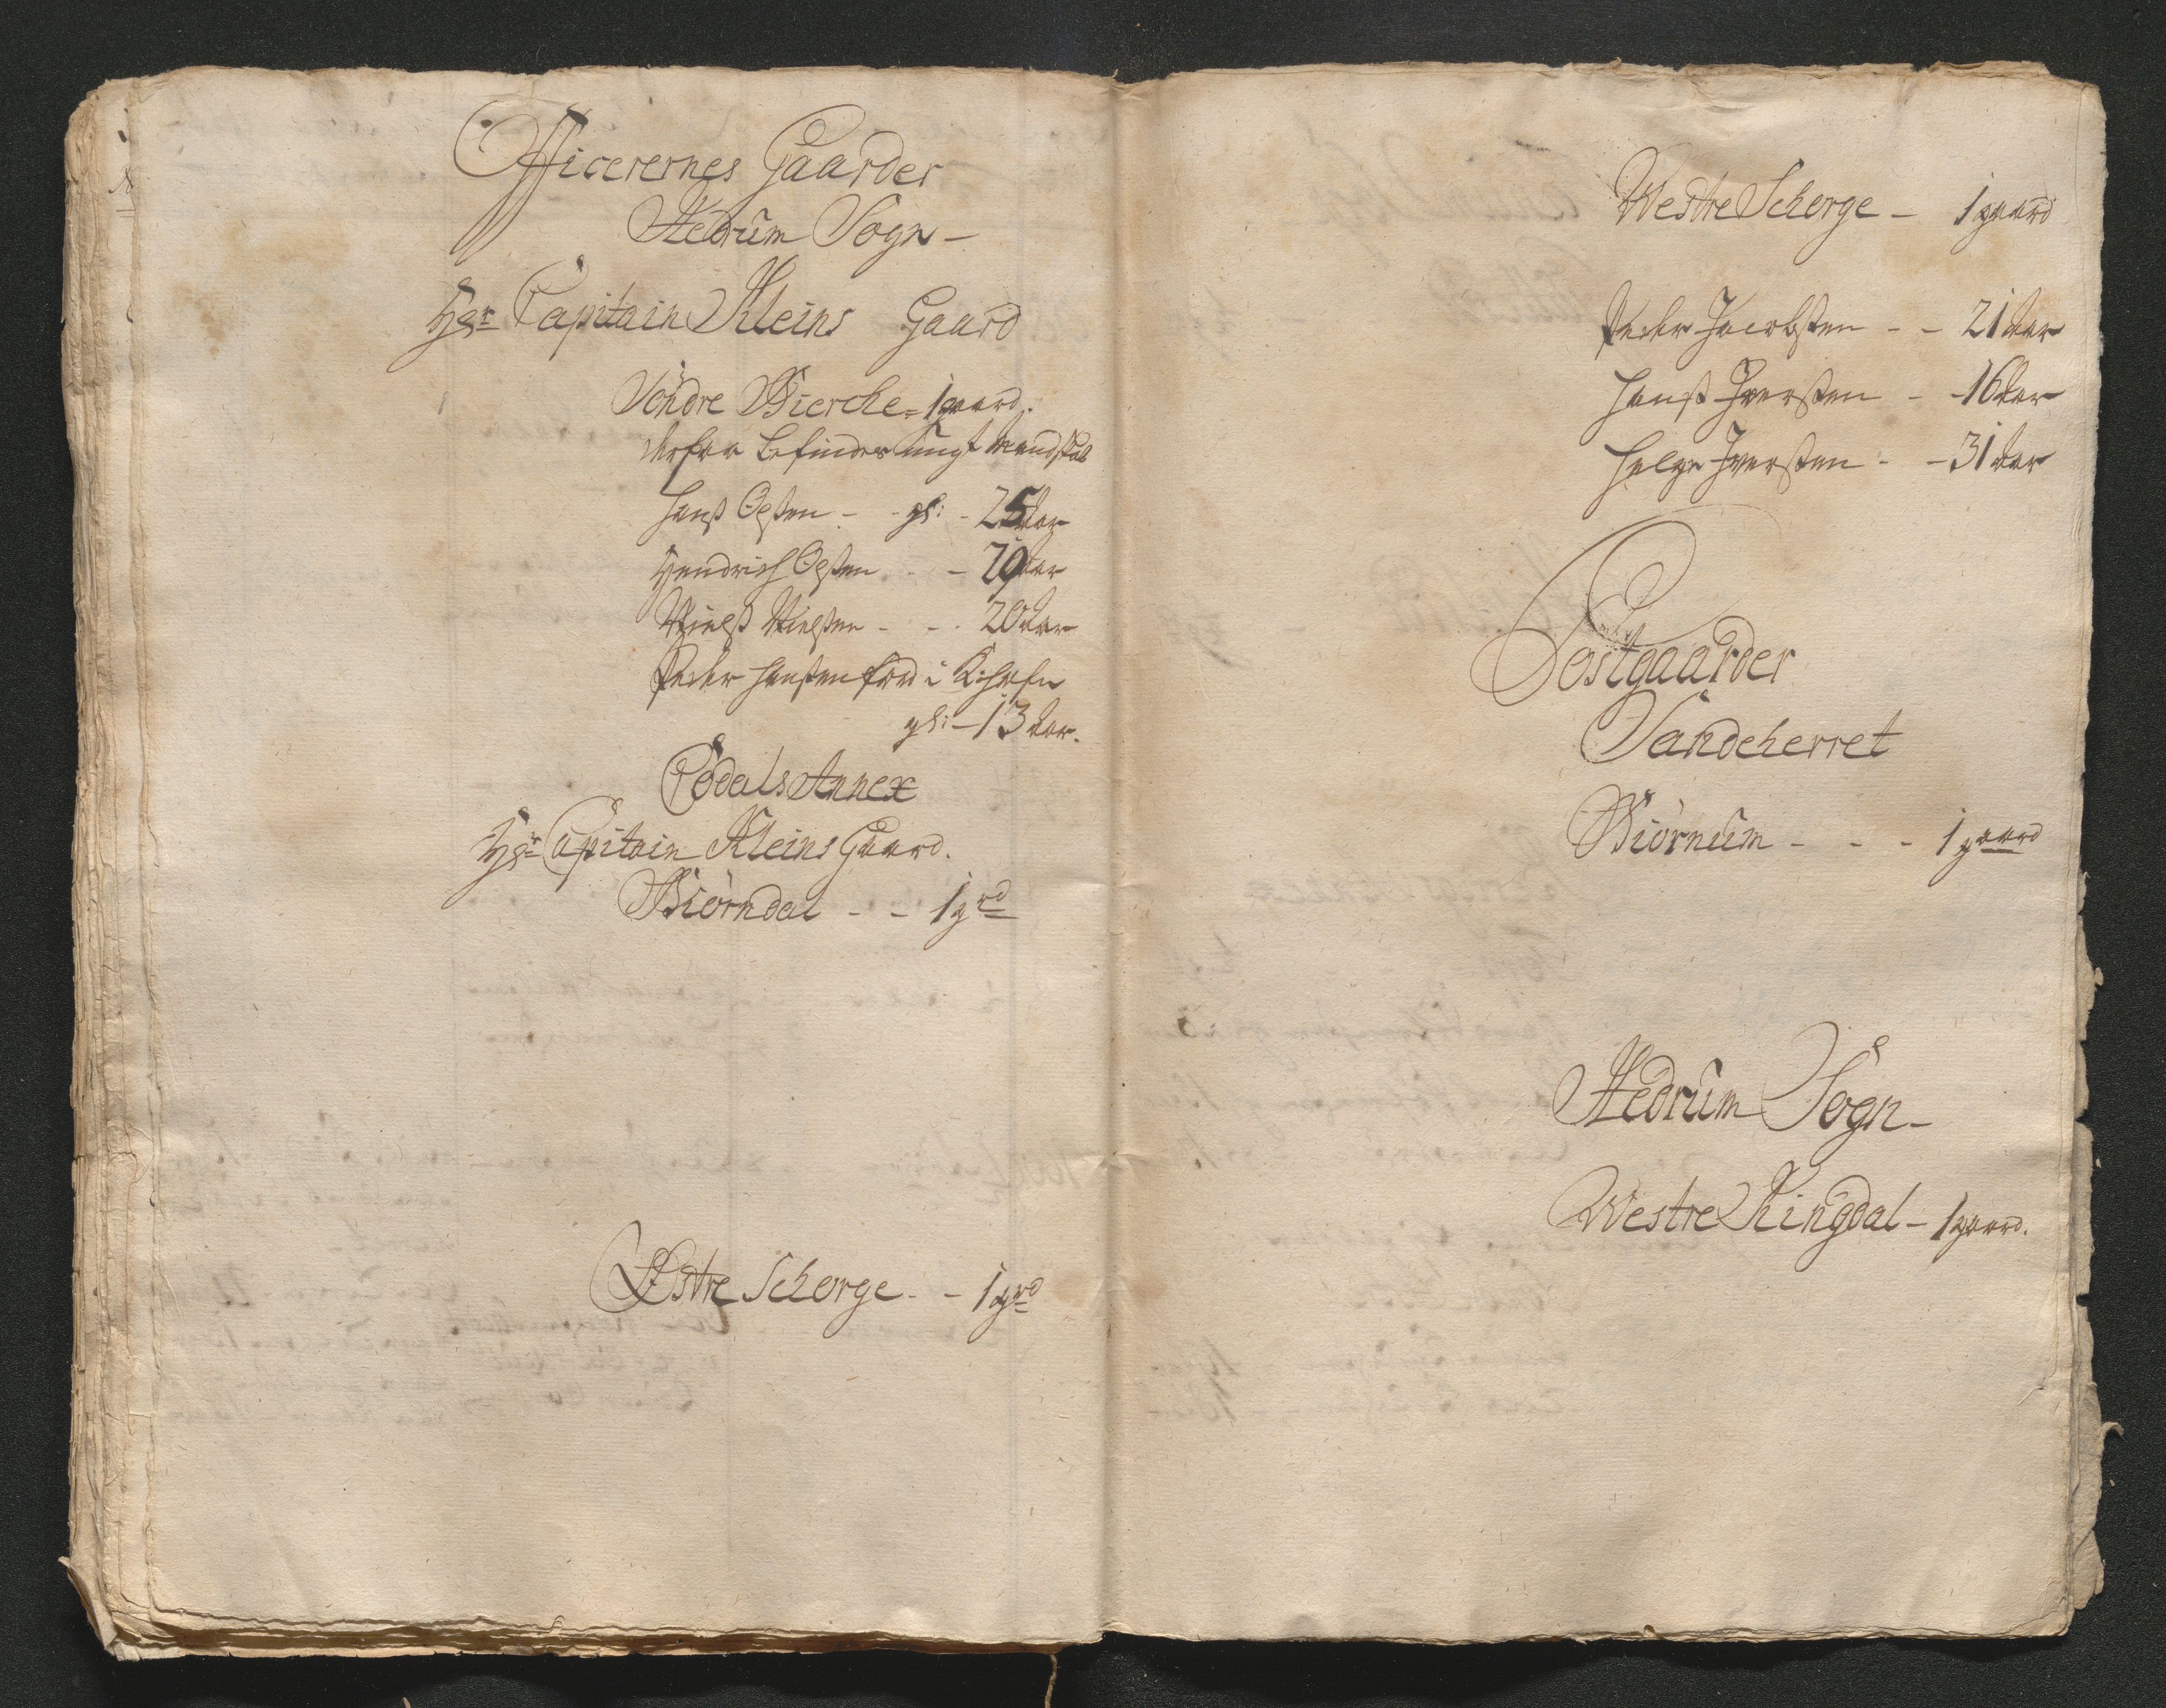 Officerernes Gaarder
Hedrum Sogn -
Hr Capitain Kleins Gaard
Söndre Bierche - 1 gaard.
derpaa befindes ungt Mandskab
Hans Olsen - - gl: - 25 Aar
Hendrich Olsen - - 20 Aar
Nielß Nielsen - - - 20 Aar
Peder Hansen föed i Kihafn
gl: - 13 Aar.
Odals Annex
Hr Capitain Kleins Gaard.
Biörndal - - 1 grd
Östre Schorge - - 1 grd
Westre Schorge - 1 gaard
Peder Jacobsen - - 21 Aar
Hanß Iversen - - 16 Aar
Helge Iversen - - 31 Aar
Postgaarder
Sandeherret
Biörnum - - - 1 gaard
Hedrum Sogn -
Westre Ringdal - 1 gaard.